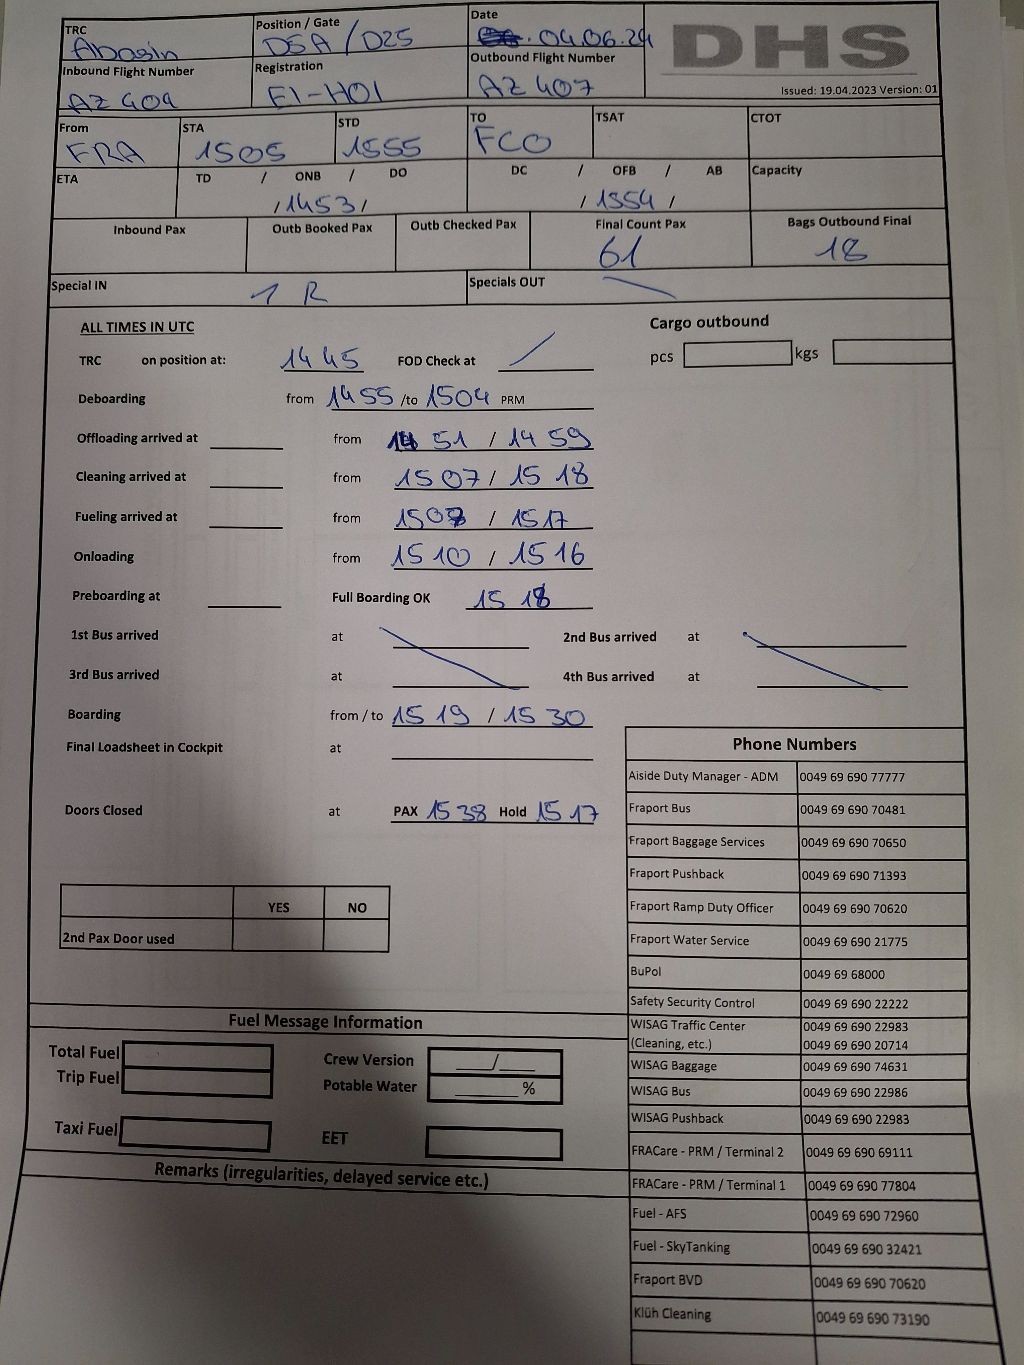 TRC Position / Gate Date DHS
Abasin D5A / D25 04.06.24
Inbound Flight Number Registration Outbound Flight Number
AZ 404 EI-HOI AZ 407 Issued: 19.04.2023 Version: 01
From STA STD TO TSAT CTOT
FRA 1505 1555 FCO
ETA TD / ONB / DO DC / OFB / AB Capacity
/ 1453 / / 1554 /
Inbound Pax Outb Booked Pax Outb Checked Pax Final Count Pax Bags Outbound Final
61 18
Special IN 1 R Specials OUT
ALL TIMES IN UTC Cargo outbound
TRC on position at: 1445 FOD Check at pcs kgs
Deboarding from 1455 /to 1504 PRM
Offloading arrived at from 14 51 / 14 59
Cleaning arrived at from 15 07 / 15 18
Fueling arrived at from / 15 17
Onloading from 15 10 / 15 16
Preboarding at Full Boarding OK 15 18
1st Bus arrived at 2nd Bus arrived at
3rd Bus arrived at 4th Bus arrived at
Boarding from / to 15 19 / 15 30
Final Loadsheet in Cockpit at
Doors Closed at PAX 15 38 Hold 15 17
YES NO
2nd Pax Door used
Phone Numbers
Aiside Duty Manager - ADM 0049 69 690 77777
Fraport Bus 0049 69 690 70481
Fraport Baggage Services 0049 69 690 70650
Fraport Pushback 0049 69 690 71393
Fraport Ramp Duty Officer 0049 69 690 70620
Fraport Water Service 0049 69 690 21775
BuPol 0049 69 68000
Safety Security Control 0049 69 690 22222
WISAG Traffic Center 0049 69 690 22983
(Cleaning, etc.) 0049 69 690 20714
WISAG Baggage 0049 69 690 74631
WISAG Bus 0049 69 690 22986
WISAG Pushback 0049 69 690 22983
FRACare - PRM / Terminal 2 0049 69 690 69111
FRACare - PRM / Terminal 1 0049 69 690 77804
Fuel - AFS 0049 69 690 72960
Fuel - SkyTanking 0049 69 690 32421
Fraport BVD 0049 69 690 70620
Klüh Cleaning 0049 69 690 73190
Fuel Message Information
Total Fuel Crew Version /
Trip Fuel Potable Water %
Taxi Fuel EET
Remarks (irregularities, delayed service etc.)